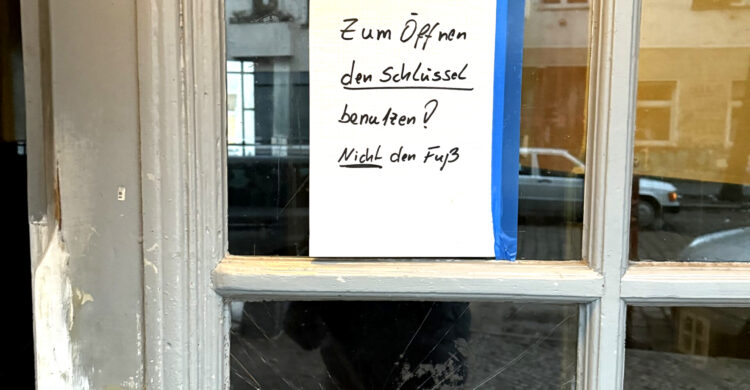 Zum Öffnen
den Schlüssel
benutzen!
Nicht den Fuß